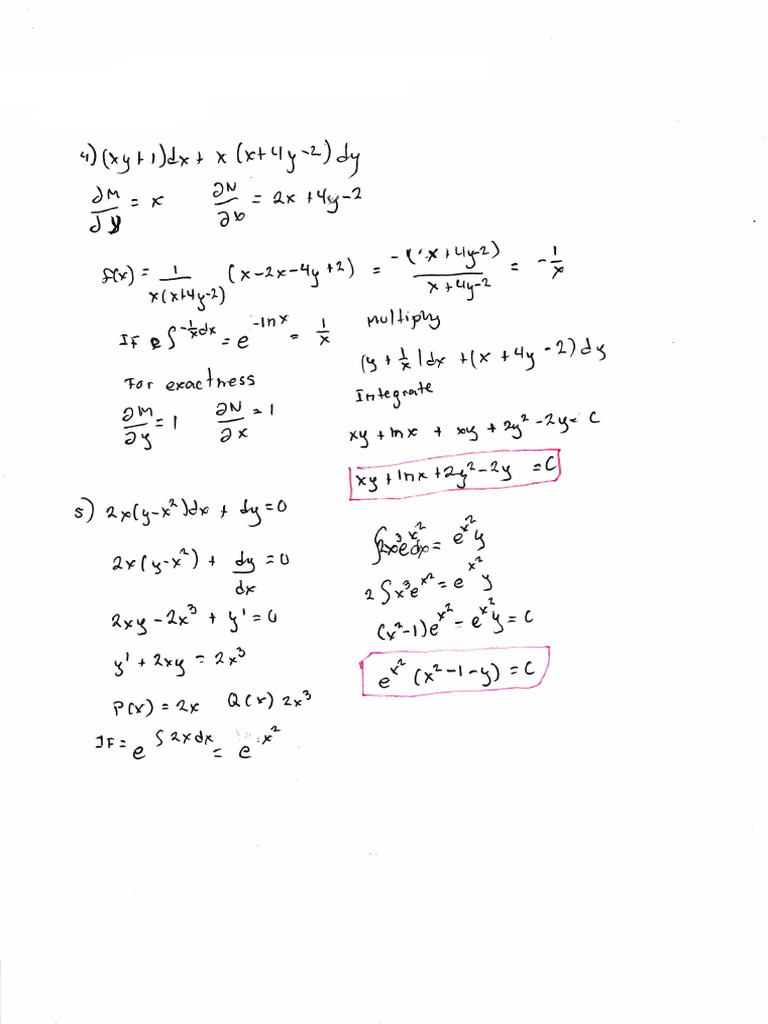 4) (xy+1)dx + x (x+4y-2) dy
∂M/∂y = x ∂N/∂x = 2x + 4y - 2
f(x) = 1/(x(x+4y-2)) (x-2x-4y+2) = -(x+4y-2)/(x+4y-2) = -1/x
IF e∫-1/x dx = e^-ln x = 1/x
For exactness
∂M/∂y = 1 ∂N/∂x = 1
Multiply
(y + 1/x)dx + (x + 4y - 2) dy
Integrate
xy + lnx + xy + 2y² - 2y = C
xy + lnx + 2y² - 2y = C
5) 2x(y-x²)dx + dy = 0
2x(y-x²) + dy/dx = 0
2xy - 2x³ + y' = 0
y' + 2xy = 2x³
P(x) = 2x Q(x) 2x³
IF = e^∫2xdx = e^x²
∫2x³e^x² dx = e^x² y
2∫x³e^x² = e^x² y
(x²-1)e^x² - e^x² y = C
e^x² (x²-1-y) = C